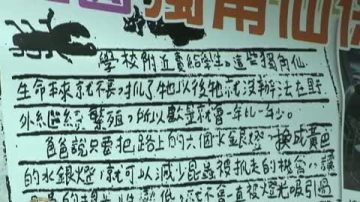 獨角仙
學校附近賣給學生。這些獨角仙
生命本來就不長,抓了牠以後牠就沒辦法在野
外繼續繁殖,所以數量就會一年比一年少。
爸爸說只要把路上的六個水銀燈,換成黃色
的水銀燈,就可以減少昆蟲被抓走的機會,
就不會一直被燈光吸引過